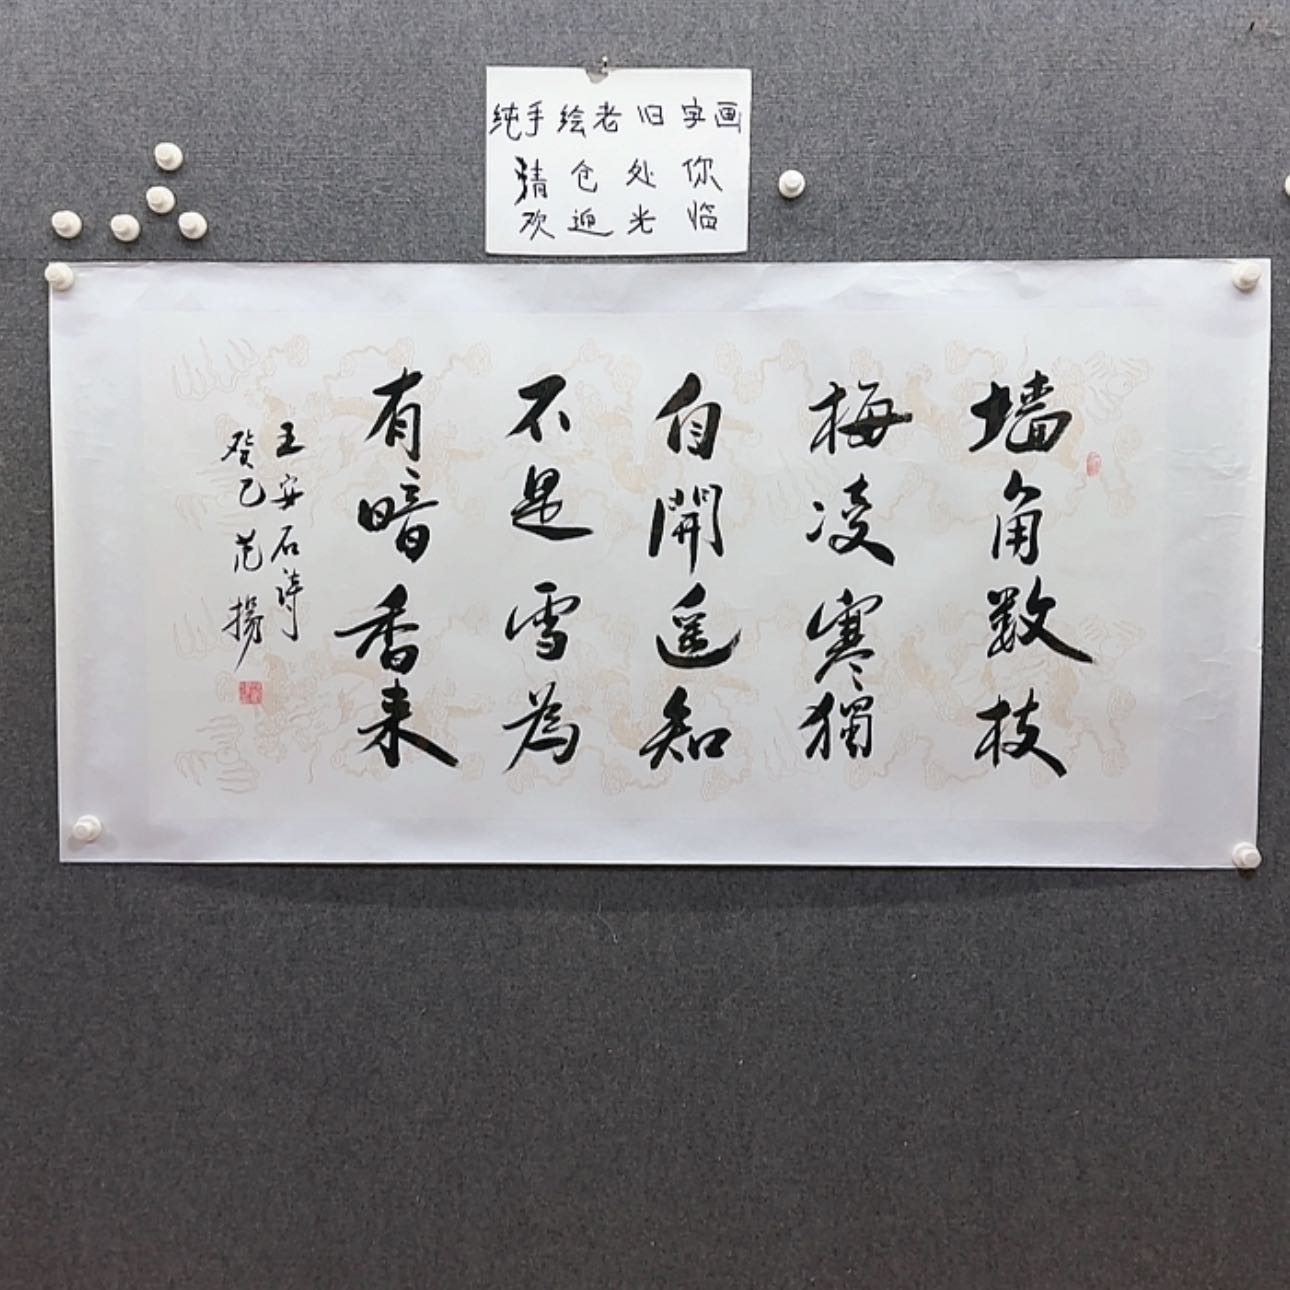 纯手绘老旧字画
清仓处你
欢迎光临
墙角数枝
梅凌寒獨
自開遥知
不是雪為
有暗香来
王安石詩
癸巳范揚